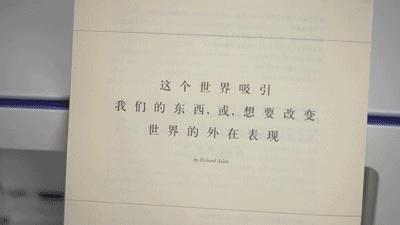 这个世界吸引
我们的东西,或,想要改变
世界的外在表现
by Richard Aslan